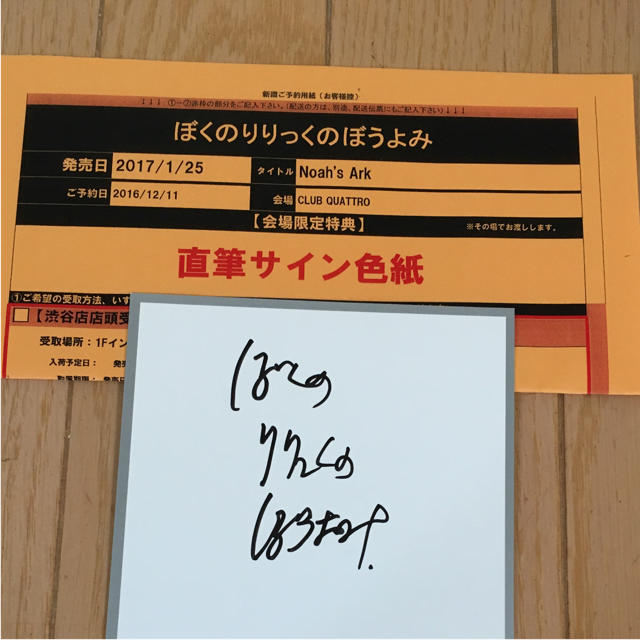 新譜ご予約用紙(お客様控)
↓↓↓ ①~②赤枠の部分をご記入下さい。(配送の方は、別途、配送伝票にもご記入下さい) ↓↓↓
ぼくのりりっくのぼうよみ
発売日 2017/1/25 タイトル Noah's Ark
ご予約日 2016/12/11 会場 CLUB QUATTRO
【会場限定特典】 ※その場でお渡しします。
直筆サイン色紙
①ご希望の受取方法、いず
□【渋谷店店頭受
受取場所:1Fイン
入荷予定日: 発
取置期限: 発売日
ぼくの
りりっくの
ぼうよみ.